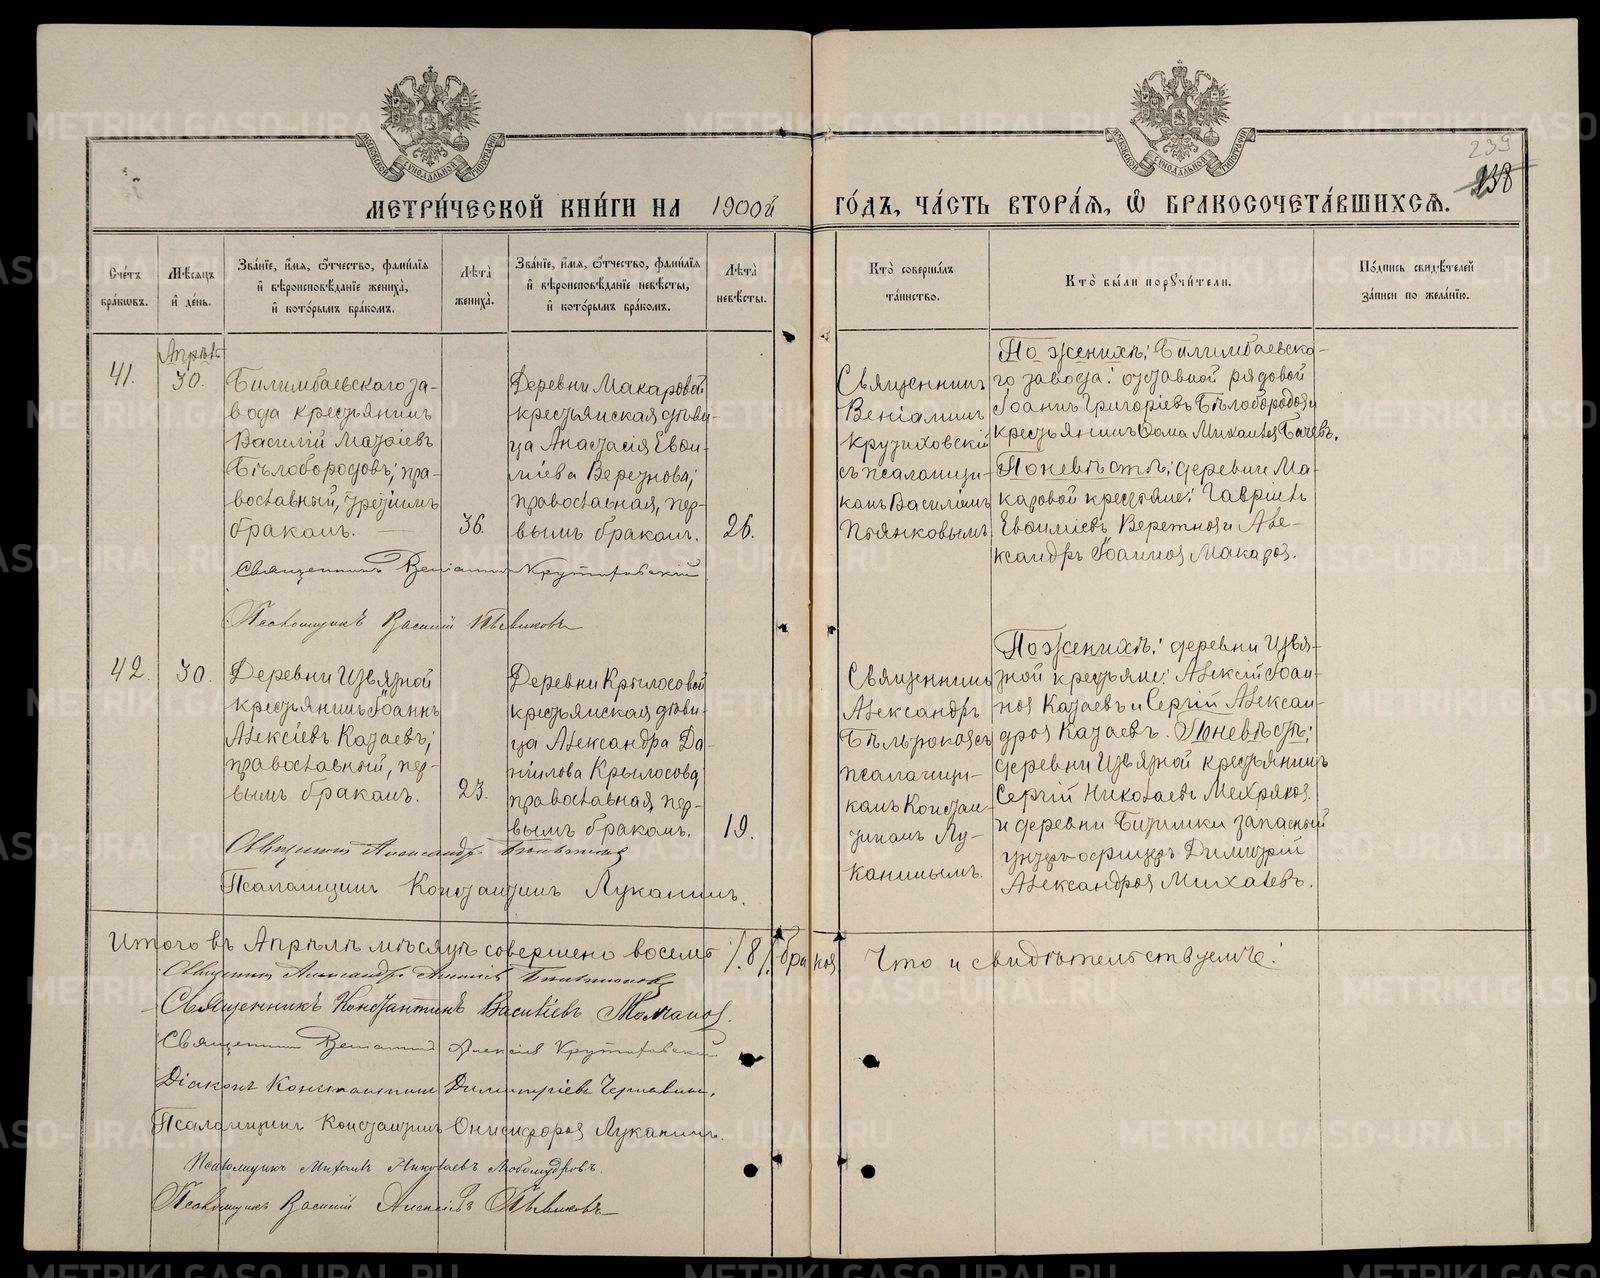 МЕТРИ́ЧЕСКОЙ КНИ́ГИ НА 1900й ГО́ДЪ, ЧА́СТЬ ВТОРА́Я, Ѡ БРАКОСОЧЕТА́ВШИХСЯ.
239
138
Сче́тъ бра́ковъ.
Мѣ́сяцъ и҆ де́нь.
Зва́нїе, и҆́мя, ѻ҆́тчество, фами́лїя
и҆ вѣроисповѣ́данїе жениха̀,
и҆ кото́рымъ бра́комъ.
Лѣта̀ жениха̀.
Зва́нїе, и҆́мя, ѻ҆́тчество, фами́лїя
и҆ вѣроисповѣ́данїе невѣ́сты,
и҆ кото́рымъ бра́комъ.
Лѣта̀ невѣ́сты.
Кто̀ соверша́лъ
та́инство.
Кто̀ бы́ли порꙋчи́тели.
По́дпись свидѣ́телей
за́писи по жела́нїю.
41.
Апрѣль
30.
Билимбаевскаго за-
вода крестьянинъ
Василій Матвіевъ
Бѣлобородовъ; пра-
вославный, третіимъ
бракомъ.
36.
Деревни Макаровой
крестьянская дѣви-
ца Анастасія Евѳи-
міева Веретнова;
православная, пер-
вымъ бракомъ.
26.
Священникъ
Веніаминъ
Крутиховскій
съ псаломщи-
комъ Василіемъ
Пьянковымъ
По женихѣ: Билимбаевска-
го завода: отставной рядовой
Іоаннъ Григоріевъ Бѣлобородовъ и
крестьянинъ Ѳома Михаиловъ
По невѣстѣ: деревни Ма-
каровой крестьяне: Гавріилъ
Евѳиміевъ Веретновъ и Але-
ксандръ Іоанновъ Макаровъ.
Священникъ Веніаминъ Крутиховскій
Псаломщикъ Василій Пьянковъ
42.
30.
Деревни Извѣзной
крестьянинъ Іоаннъ
Алексіевъ Катаевъ;
православный, пер-
вымъ бракомъ.
23.
Деревни Крылосовой
крестьянская дѣви-
ца Александра Да-
нилова Крылосова;
православная, пер-
вымъ бракомъ.
19.
Священникъ
Александръ
Бѣльтюковъ съ
псаломщи-
комъ Констан-
тиномъ Лу-
канинымъ.
По женихѣ: деревни Извѣ-
зной крестьяне: Алексій Іоан-
новъ Катаевъ и Сергій Алексан-
дровъ Катаевъ. По невѣстѣ:
деревни Извѣзной крестьянинъ
Сергій Николаевъ Мехряковъ
и деревни Битимки запасный
унтеръ-офицеръ Димитрій
Александровъ Михалевъ.
Священникъ Александръ Бѣльтюковъ
Псаломщикъ Константинъ Луканинъ.
Итого въ Апрѣлѣ мѣсяцѣ совершено восемь /.8/. браковъ
Что и свидѣтельствуемъ:
Священникъ Александръ Алексіевъ Бѣльтюковъ
Священникъ Константинъ Василіевъ Молчановъ.
Священникъ Веніаминъ Алексіевъ Крутиховскій
Діаконъ Константинъ Димитріевъ Чернавинъ.
Псаломщикъ Константинъ Онисифоровъ Луканинъ.
Псаломщикъ Михаилъ Николаевъ Любомудровъ.
Псаломщикъ Василій Алексіевъ Пьянковъ
METRIKI.GASO-URAL.RU